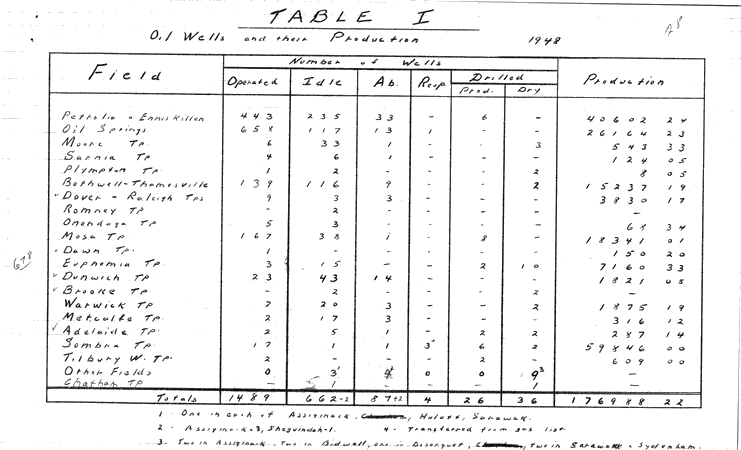 TABLE I
Oil Wells and their Production 1948
Field Number of Wells Production
Operated Idle Ab. Reop Drilled
Prod. Dry
Petrolia & Enniskillen 443 235 33 - 6 - 40602 24
Oil Springs 658 117 13 1 - - 26164 23
Moore Tp 6 33 1 - - 3 543 33
Sarnia Tp 4 6 1 - - - 124 05
Plympton Tp 1 2 - - - 2 8 05
Bothwell-Thamesville 139 116 9 - - 2 15237 19
Dover - Raleigh Tps 9 3 3 - - - 3830 17
Romney Tp - 2 - - - - -
Onondaga Tp 5 3 - - - - 68 34
Mosa Tp 167 38 1 - 8 - 18341 01
Dawn Tp. 1 - - - - - 150 20
Euphemia Tp 3 15 - - 2 10 7160 33
678
Dunwich Tp 23 43 14 - - - 1821 08
Brooke Tp - 2 - - - 2 -
Warwick Tp 7 20 3 - - 2 1875 19
Metcalfe Tp 2 17 3 - - - 316 12
Adelaide Tp. 2 5 1 - 2 2 287 14
Sombra Tp 17 1 1 3 6 2 59846 00
Tilbury W. Tp. 2 - - - 2 - 609 00
Other Fields 0 3 0 0 9 -
Chatham Tp - 1 - - - 1 -
Totals 1489 662-2 87+2 4 26 36 176988 22
1 - One in each of Assiginack, Hulett, Sarawak.
2 - Assiginack-3, Sheguindah-1. 4 - Transferred from gas list
3 - Two in Assiginack - Two in Bidwell, one in Bosanquet, two in Sarawak - Sydenham.